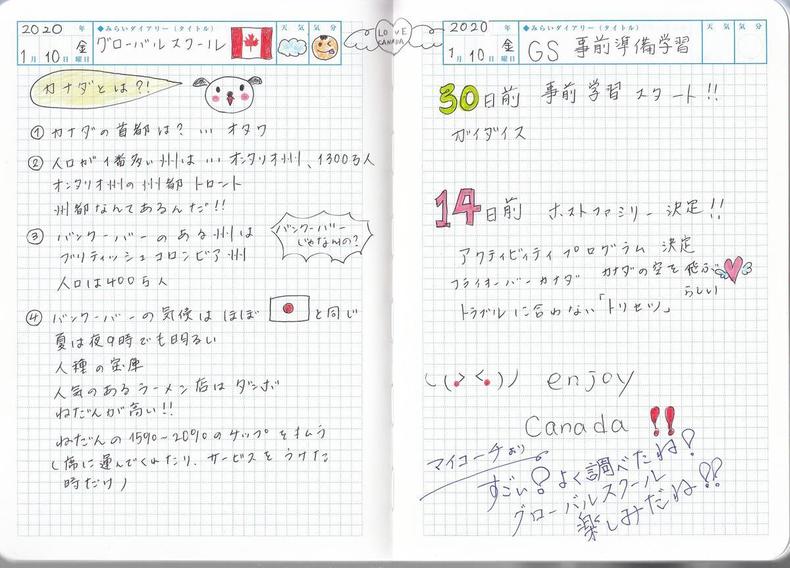 2020 年
◆みらいダイアリー(タイトル)
天気 気分
1月10日 金曜日
グローバルスクール
カナダとは?!
① カナダの首都は? … オタワ
② 人口が1番多い州は … オンタリオ州、1300万人
オンタリオ州の州都 トロント
州都なんてあるんだ!!
③ バンクーバーのある州は
ブリティッシュコロンビア州
人口は400万人
バンクーバー
じゃないの?
④ バンクーバーの気候は ほぼ と同じ
夏は夜9時でも明るい
人種の宝庫
人気のあるラーメン店はダンボ
ねだんが高い!!
ねだんの15%~20%のチップをはらう
(席に運んでくれたり、サービスをうけた
時だけ)
LOVE
CANADA
2020 年
◆みらいダイアリー(タイトル)
天気 気分
1月10日 金曜日
GS 事前準備学習
30日前 事前学習スタート!!
ガイダイス
14日前 ホストファミリー 決定!!
アクティビティプログラム 決定
フライオーバーカナダ カナダの空を飛ぶ
らしい
トラブルに合わない「トリセツ」
enjoy
Canada !!
マイコーチより
すごい!よく調べたね!
グローバルスクール
楽しみだね!!